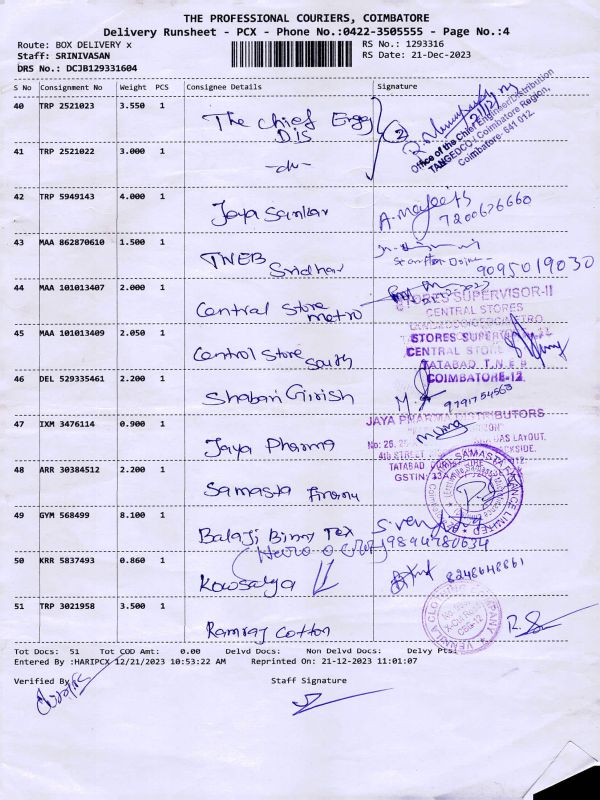 THE PROFESSIONAL COURIERS, COIMBATORE
Delivery Runsheet - PCX - Phone No.:0422-3505555 - Page No.:4
Route: BOX DELIVERY x
RS No.: 1293316
Staff: SRINIVASAN
RS Date: 21-Dec-2023
DRS No.: DCJB129331604
S No Consignment No Weight PCS Consignee Details Signature
40 TRP 2521023 3.550 1 The Chief Engg
D/S
Office of the Chief Engineer/Distribution
TANGEDCO/Coimbatore Region,
Coimbatore- 641 012.
41 TRP 2521022 3.000 1 -do-
42 TRP 5949143 4.000 1 Jaya Sankar
7200676660
43 MAA 862870610 1.500 1 TNEB Sridhar
9095019030
44 MAA 101013407 2.000 1 Central Store
metro
STORES SUPERVISOR-II
CENTRAL STORES
45 MAA 101013409 2.050 1 Central Store
South
STORES SUPERVISOR
CENTRAL STORE
TATABAD T.N.E.B
COIMBATORE-12
46 DEL 529335461 2.200 1 Shabari Girish
9791754563
47 IXM 3476114 0.900 1 Jaya Pharma
JAYA PHARMA DISTRIBUTORS
TATABAD
GSTIN:
48 ARR 30384512 2.200 1 Samasta
SAMASTA FINANCE LIMITED
49 GYM 568499 8.100 1 Balaji Binny Tex
9894780634
50 KRR 5837493 0.860 1 Kowsalya
8248648861
51 TRP 3021958 3.500 1 Ramraj Cotton
Tot Docs: 51 Tot COD Amt: 0.00 Delvd Docs: Non Delvd Docs: Delvy Pts:
Entered By :HARIPCX 12/21/2023 10:53:22 AM Reprinted On: 21-12-2023 11:01:07
Verified By
Staff Signature